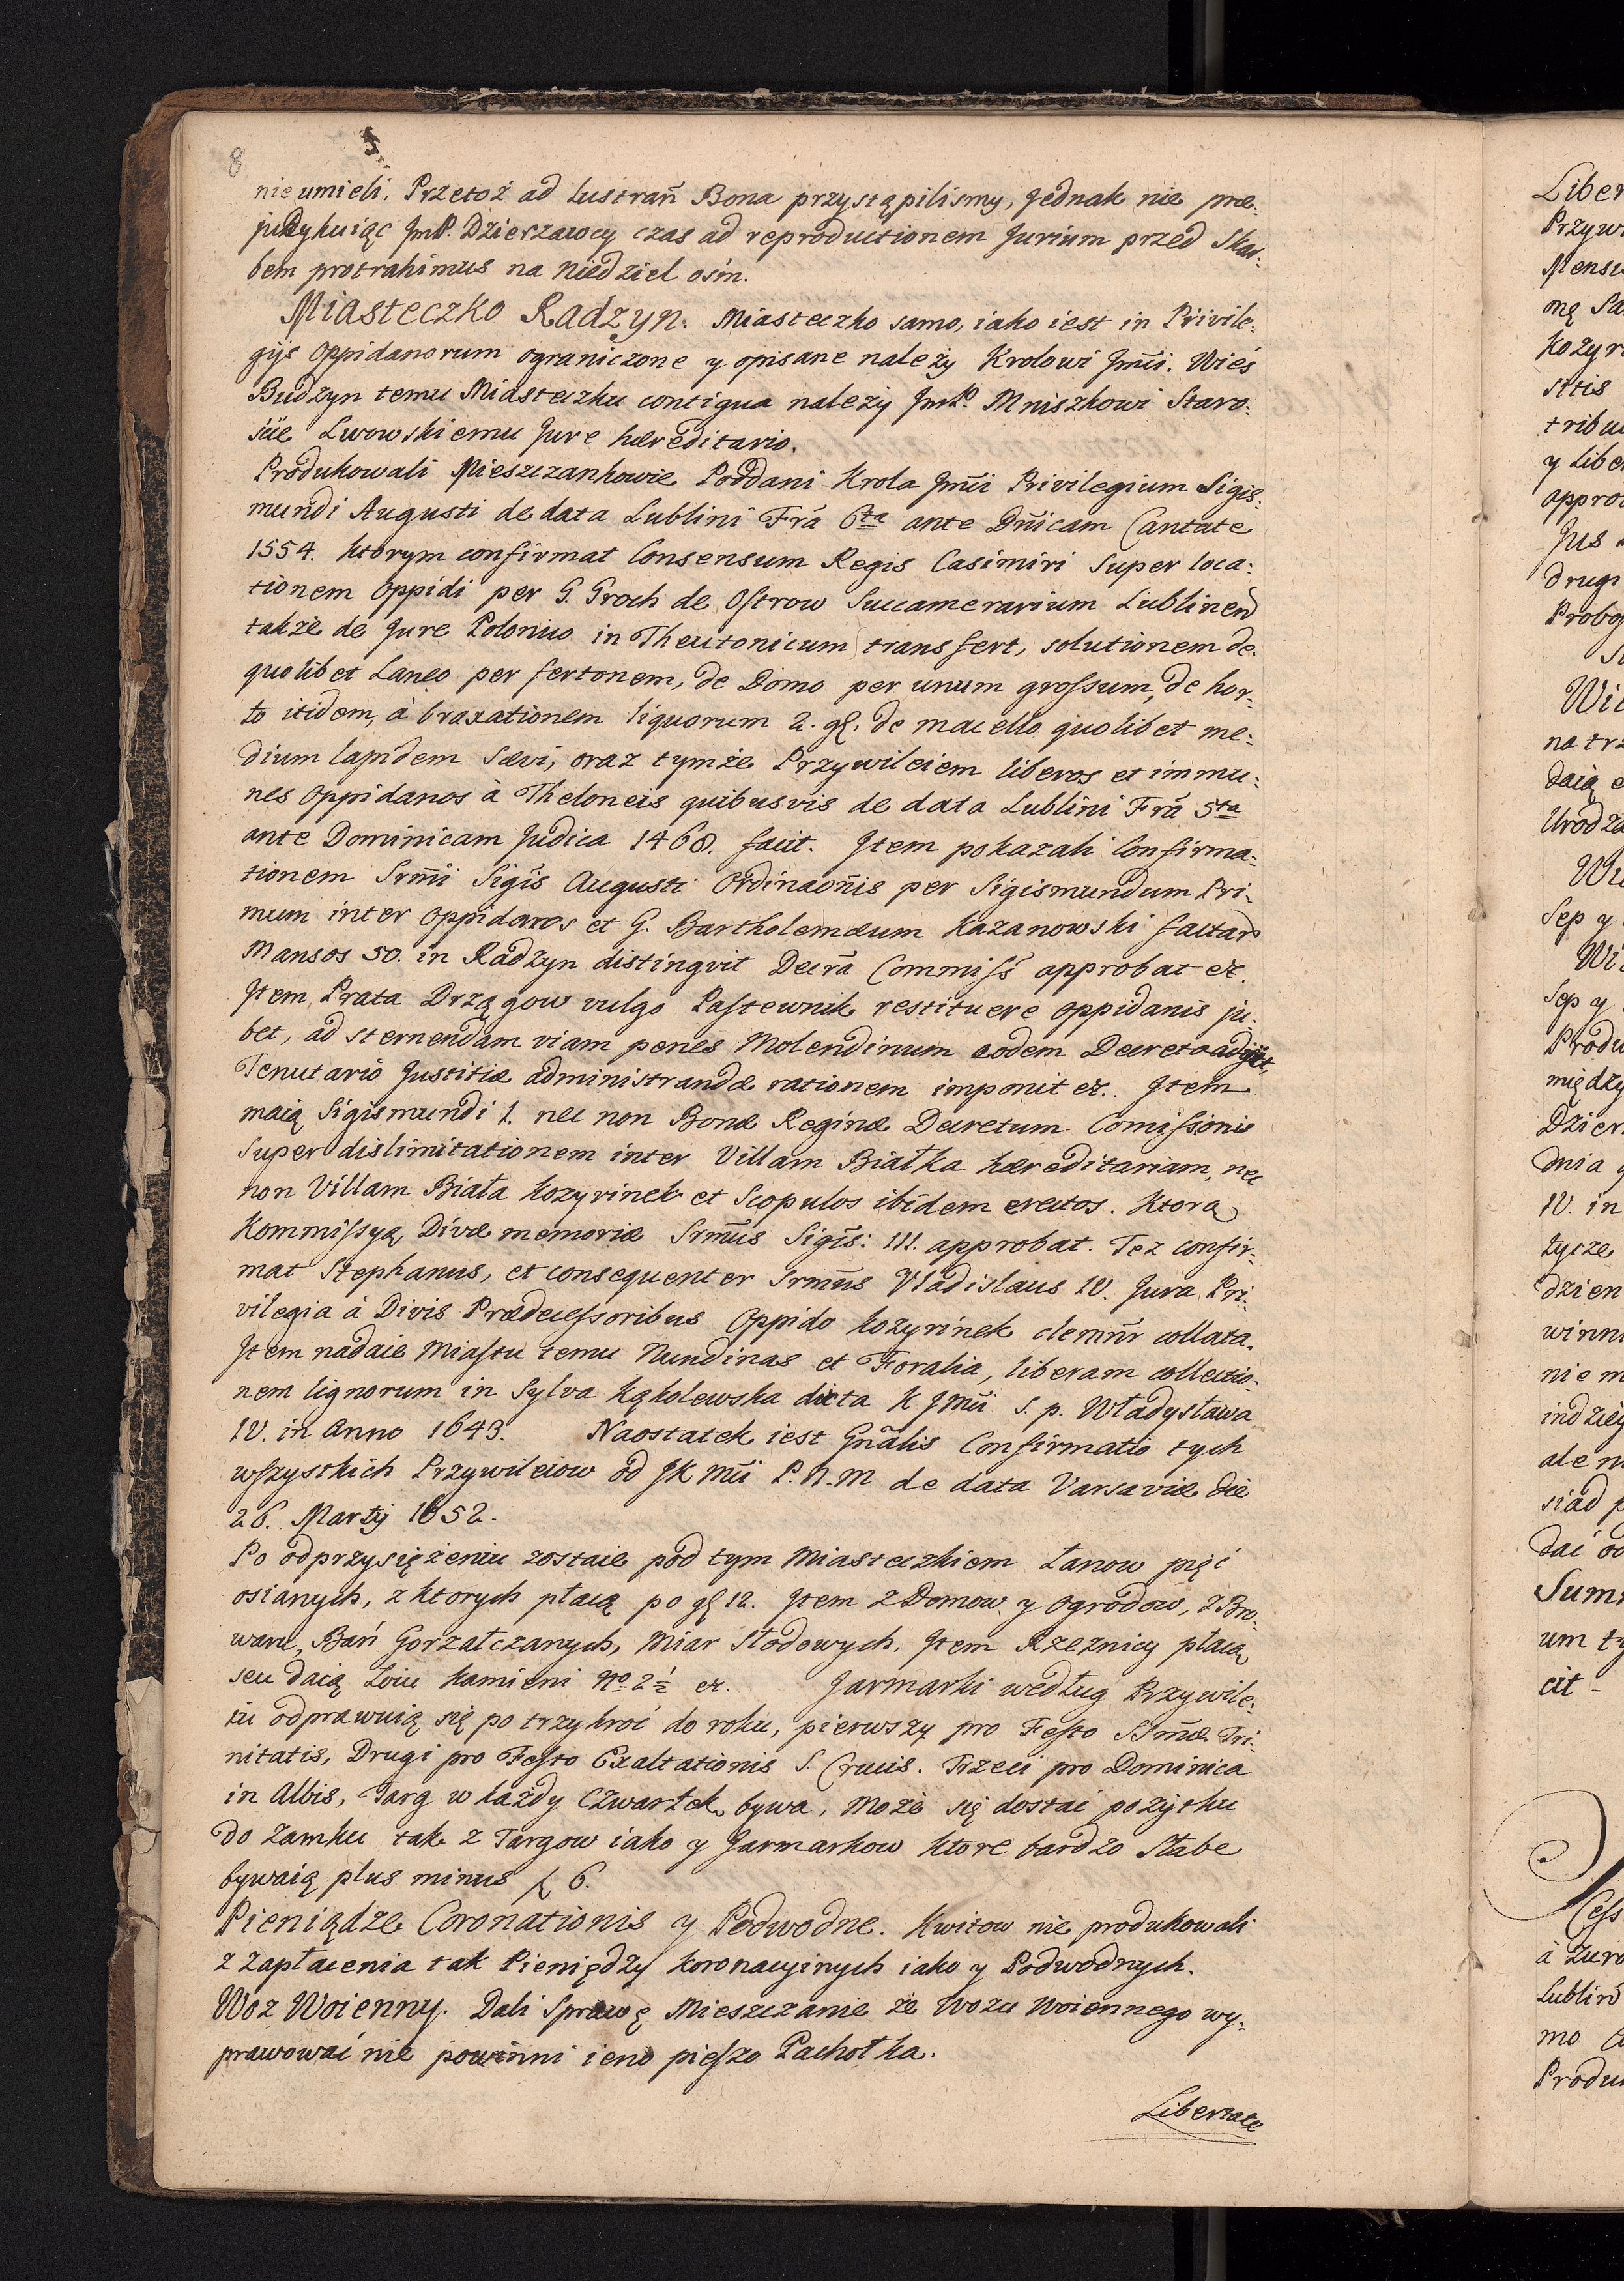 8
nie umieli. Przetoż ad lustrañ Bona przystąpilismy, Jednak nie præ:
judykuiąc JmP. Dzierzawcy czas ad reproductionem Jurium przed Skar:
bem protrahimus na niedziel osm.
Miasteczko Radzyn. Miasteczko samo, iako iest in Privile:
gijs Oppidanorum ograniczone y opisane należy Krolowi Jm̃i. Wieś
Budzyn temu Miasteczku contigua należy JmP. Mniszkowi Staro:
ście Lwowskiemu Jure hæreditario.
Produkowali Mieszczankowie Poddani Krola Jm̃i Privilegium Sigis:
mundi Augusti de data Lublini Frã 6ta ante Dñicam Cantate
1554. ktorym confirmat Consensum Regis Casimiri super loca:
tionem Oppidi per G. Groch de Ostrow Succamerarium Lublinen
także de Jure Polonico in Theutonicum transfert, solutionem de
quolibet Laneo per fertonem, de Domo per unum grossum, de hor:
to itidem, à braxationem liquorum 2. gſ. de macello quolibet me:
dium lapidem sævi, oraz tymże Przywileiem liberos et immu:
nes Oppidanos à Theloneis quibusvis de data Lublini Frã 5ta
ante Dominicam Judica 1468. facit. Item pokazali Confirma:
tionem Srm̃i Sigis Augusti Ordinaoñis per Sigismundum Pri:
mum inter Oppidanos et G. Bartholemæum Kazanowski factam
Mansos 50. in Radzyn distingvit Decrã Commiss̃ approbat et.
Item Prata Drzągow vulgo Pastewnik restituere oppidanis ju:
bet, ad sternendam viam penes Molendinum eodem Decreto adigit,
Tenutario Justitiæ administrandæ rationem imponit et. Item
maią Sigismundi 1. nec non Bonæ Reginæ Decretum Comissionis
super dislimitationem inter Villam Białka hæreditariam, nec
non Villam Biała kozyrinek et Scopulos ibidem erectos. Ktorą
Kommissyą Divæ memoriæ Srm̃us Sigis: III. approbat. Też confir:
mat Stephanus, et consequenter Srm̃us Vladislaus IV. Jura Pri:
vilegia à Divis Prædecessoribus Oppido kozyrinek clemñr collata.
Item nadaie Miastu temu Nundinas et Foralia, liberam collectio:
nem lignorum in Sylva Kąkolewska dicta K JMũi s. p. Władysława
IV. in Anno 1643. Naostatek iest Gñalis Confirmatio tych
wszystkich Przywileiow od JK Mũi P. N. M de data Varsaviæ die
26. Martij 1652.
Po odprzysiężeniu zostaie pod tym Miasteczkiem Łanow pięć
osianych, z ktorych płacą po gſ 12. Item z Domow y Ogrodow, z Bro:
waru, Bań Gorzałczanych, Miar Słodowych. Item Rzeznicy płacą
seu daią Łoiu kamieni No 2½ et. Jarmarki według Przywile:
iu odprawuią się po trzykroć do roku, pierwszy pro Festo SSm̃æ Tri:
nitatis, Drugi pro Festo Exaltationis S. Crucis. Trzeci pro Dominica
in Albis, Targ w każdy Czwartek bywa, Może się dostać pożytku
do zamku tak z Targow iako y Jarmarkow ktore bardzo Słabe
bywaią plus minus ƒ 6.
Pieniądze Coronationis y Podwodne. Kwitow nie produkowali
z zapłacenia tak Pieniędzy koronacyinych iako y Podwodnych.
Woz Woienny. Dali Sprawę Mieszczanie że Wozu Woiennego wy:
prawować nie powinni ieno pieszo Pachołka.
Libertate